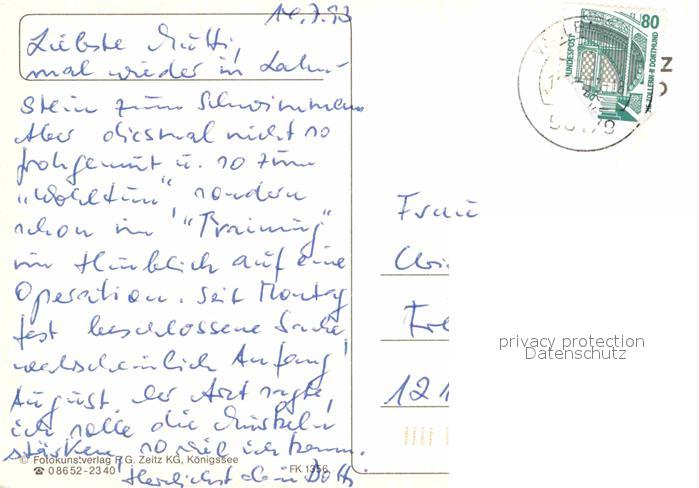 14.7.93
Liebste Mutti,
mal wieder in Lahn-
stein zum Schwimmen
Aber diesmal nicht so
frohgemut u. so zum
„Wohltun" sondern
schon im "Training"
im Hinblich auf eine
Operation. Seit Montag
fest beschlossene Sache
wahrscheinlich Anfang
August. Der Arzt sagte,
ich solle die Muskeln
stärken, so viel ich kann.
Herzlichst dein
© Fotokunstverlag F.G. Zeitz KG, Königssee
☎ 08652-2340
FK 1356
80
DEUTSCHE BUNDESPOST
ZOLLERN-II DORTMUND
Frau
privacy protection
Datenschutz